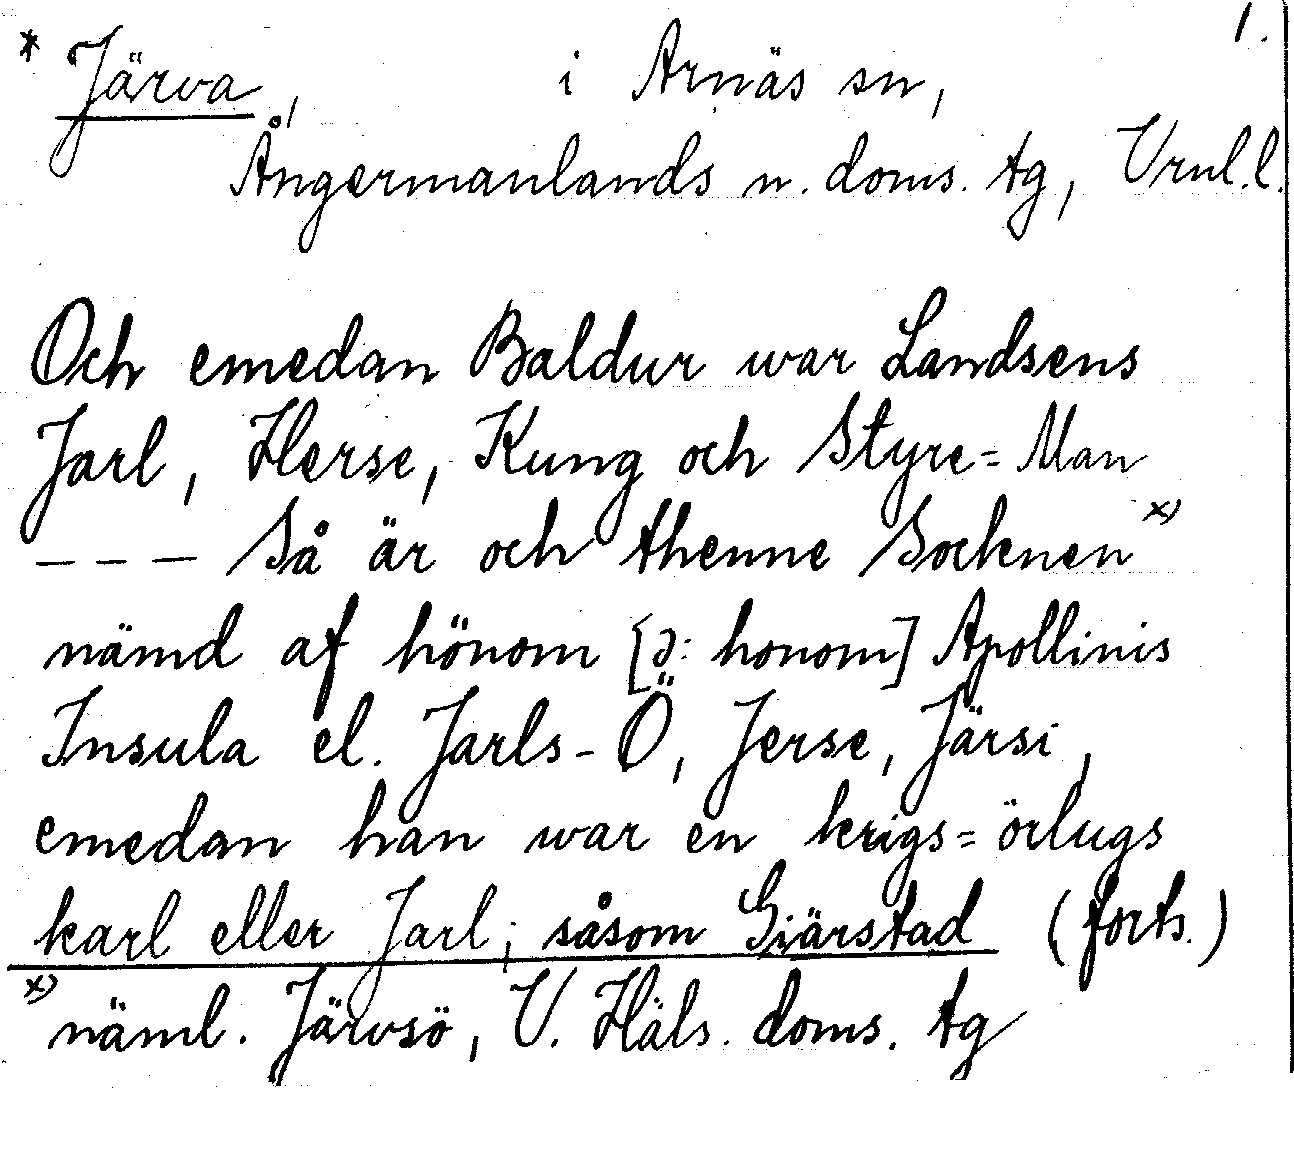 1.
* Järva, i Arnäs sn,
Ångermanlands n. doms. tg, Vrnl.l.
Och emedan Baldur war Landsens
Jarl, Herse, Kung och Styre=Man
– – – Så är och thenne Socknen x)
nämd af hönom [ɔ: honom] Apollinis
Insula el. Jarls-Ö, Jerse, Järsi,
emedan han war en krigs=örlugs
karl eller Jarl; såsom Giärstad (forts.)
x) näml. Järvsö, V. Häls. doms. tg